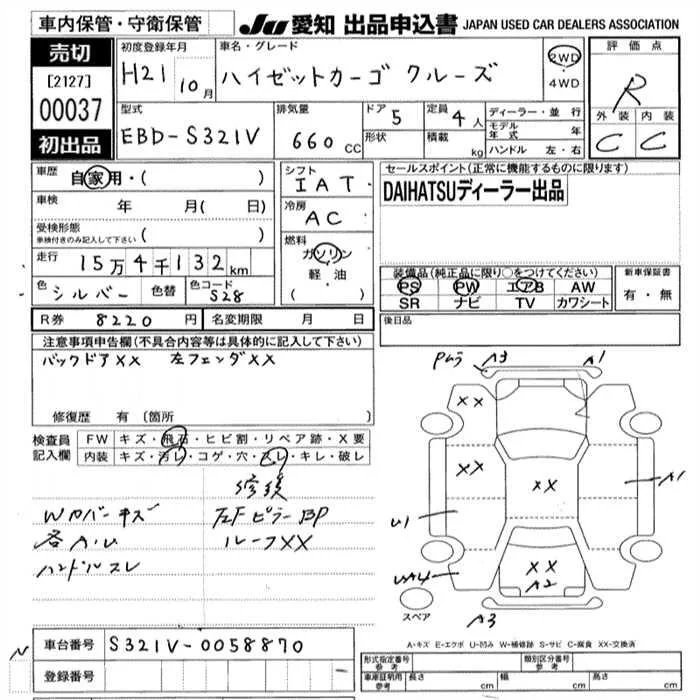 車内保管・守衛保管
JU 愛知 出品申込書 JAPAN USED CAR DEALERS ASSOCIATION
売切
[2127]
00037
初出品
初度登録年月
H21 10月
車名・グレード
ハイゼットカーゴ クルーズ
2WD
・
4WD
評価点
R
外装 内装
C C
型式
EBD-S321V
排気量
660 CC
ドア 5
形状
定員 4人
積載 kg
ディーラー・並行
モデル年式 年
ハンドル 左・右
車歴 自家用・( )
車検 年 月( 日)
受検形態
車検付きのみ記入して下さい ( )
走行 15万4千132km
色 シルバー 色替 色コード S28
シフト
IAT
冷房
AC
燃料
ガソリン
軽・油
( )
セールスポイント(正常に機能するものに限ります)
DAIHATSUディーラー出品
装備品(純正品に限り○をつけてください)
PS PW エアB AW
SR ナビ TV カワシート
新車保証書
有・無
R券 8220円 名変期限 月 日
後日品
注意事項申告欄(不具合内容等は具体的に記入して下さい)
バックドアXX 左フェンダXX
修復歴 有 〔箇所 〕
検査員記入欄
FW キズ・飛石・ヒビ割・リペア跡・X要
内装 キズ・汚レ・コゲ・穴・スレ・キレ・破レ
修復
Wカバーキズ
左Fピラー BP
各A・U
ルーフXX
ハンドルスレ
Pムラ A3 A1
XX
XX
XX
A1
U1
XX
A2
A3
スペア
A-キズ E-エクボ U-凹み W-補修跡 S-サビ C-腐食 XX-交換済
車台番号 S321V-0058870
登録番号
形式指定番号 参考
類別区分番号 参考
車庫証明用 参考 長さ cm 幅 cm 高さ cm